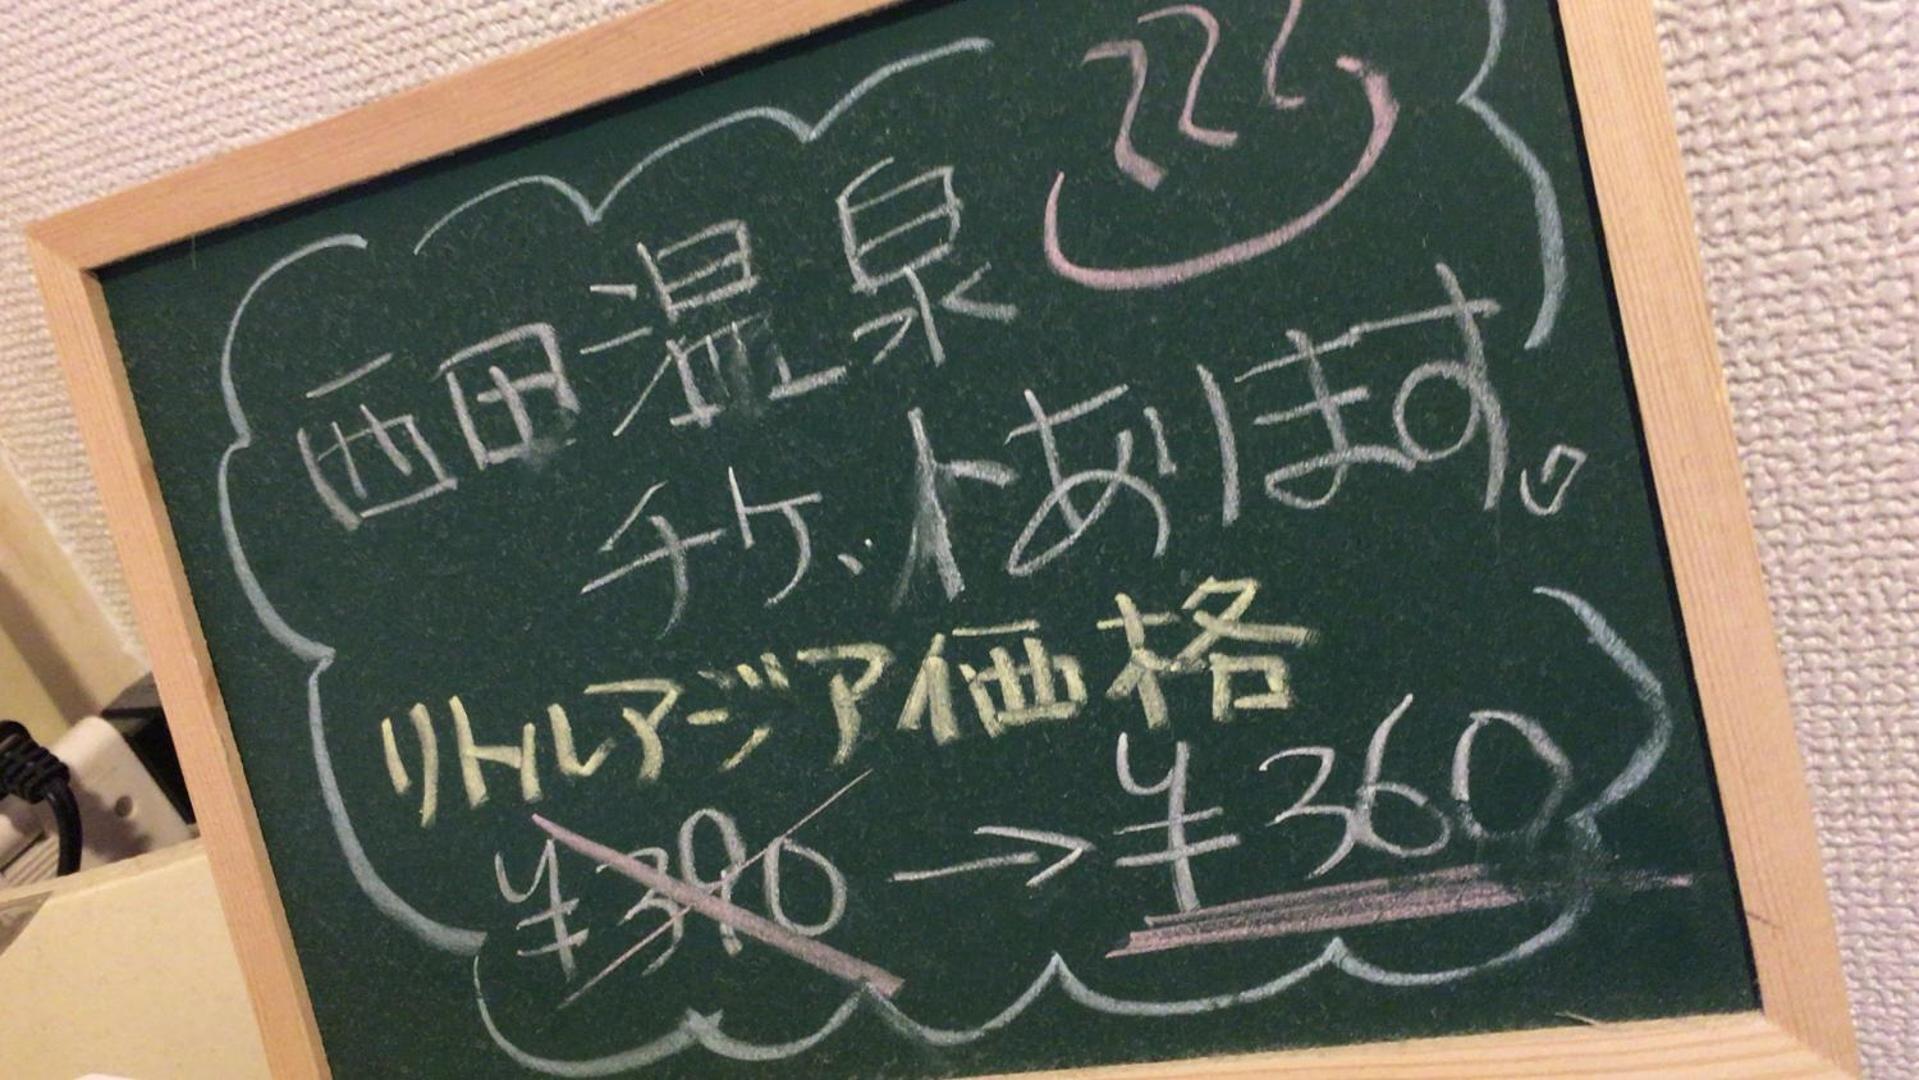 西田温泉
チケットあります
リトルアジア価格
¥390 → ¥360